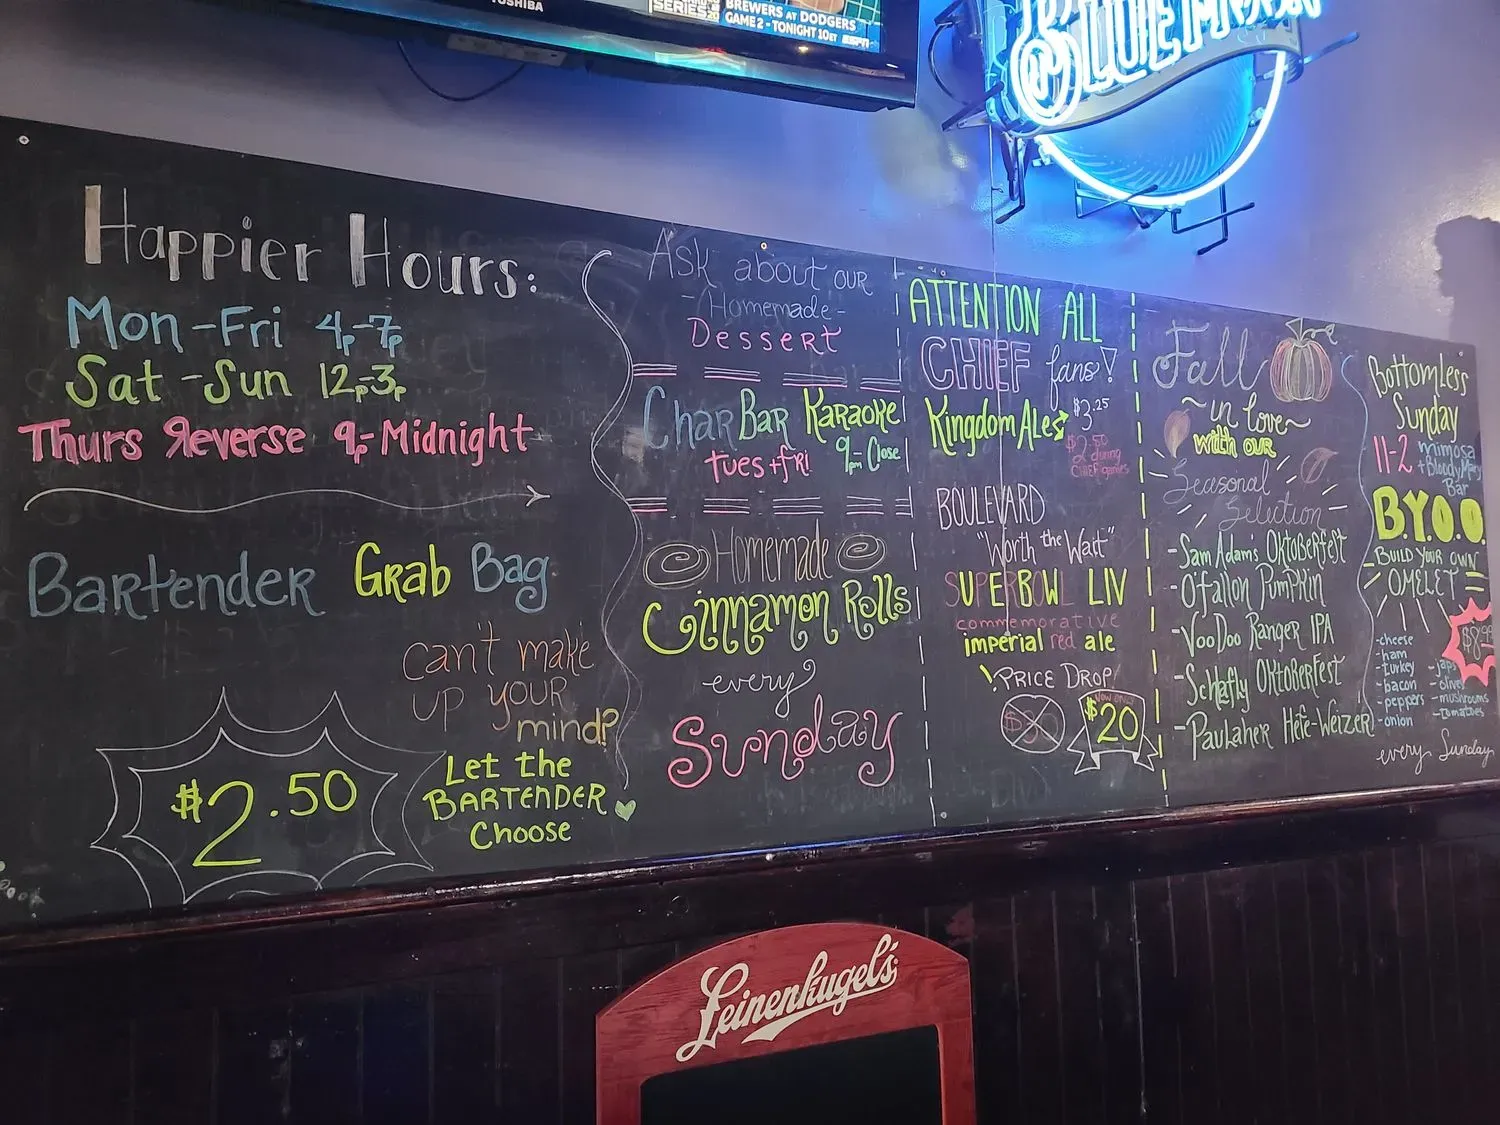 TOSHIBA
SERIES
BREWERS AT DODGERS
GAME 2 - TONIGHT 10ET ESPN
BLUE MOON
Happier Hours:
Mon-Fri 4p-7p
Sat-Sun 12p-3p
Thurs Reverse 9p-Midnight
Bartender Grab Bag
can't make
up your
mind?
Let the
BARTENDER
Choose
$2.50
Ask about our
-Homemade-
Dessert
CharBar Karaoke
tues+fri!
9pm-Close
Homemade
Cinnamon Rolls
every
Sunday
ATTENTION ALL
CHIEF fans!
Kingdom Ales
$3.25
$2.50
during
CHIEF games
BOULEVARD
"Worth the Wait"
SUPERBOWL LIV
commemorative
imperial red ale
!PRICE DROP!
$30
NOW ONLY
$20
Fall
~in love~
with our
Seasonal
Selection
-Sam Adam's Oktoberfest
-O'fallon Pumpkin
-VooDoo Ranger IPA
-Schlafly Oktoberfest
-Paulaner Hefe-Weizer
Bottomless
Sunday
11-2 mimosa
+Bloody Mary
Bar
B.Y.O.O
BUILD YOUR OWN
OMELET
-cheese
-ham
-turkey
-bacon
-peppers
-onion
-japs
-olives
-mushrooms
-tomatoes
$8.99
every Sunday
Leinenkugel's